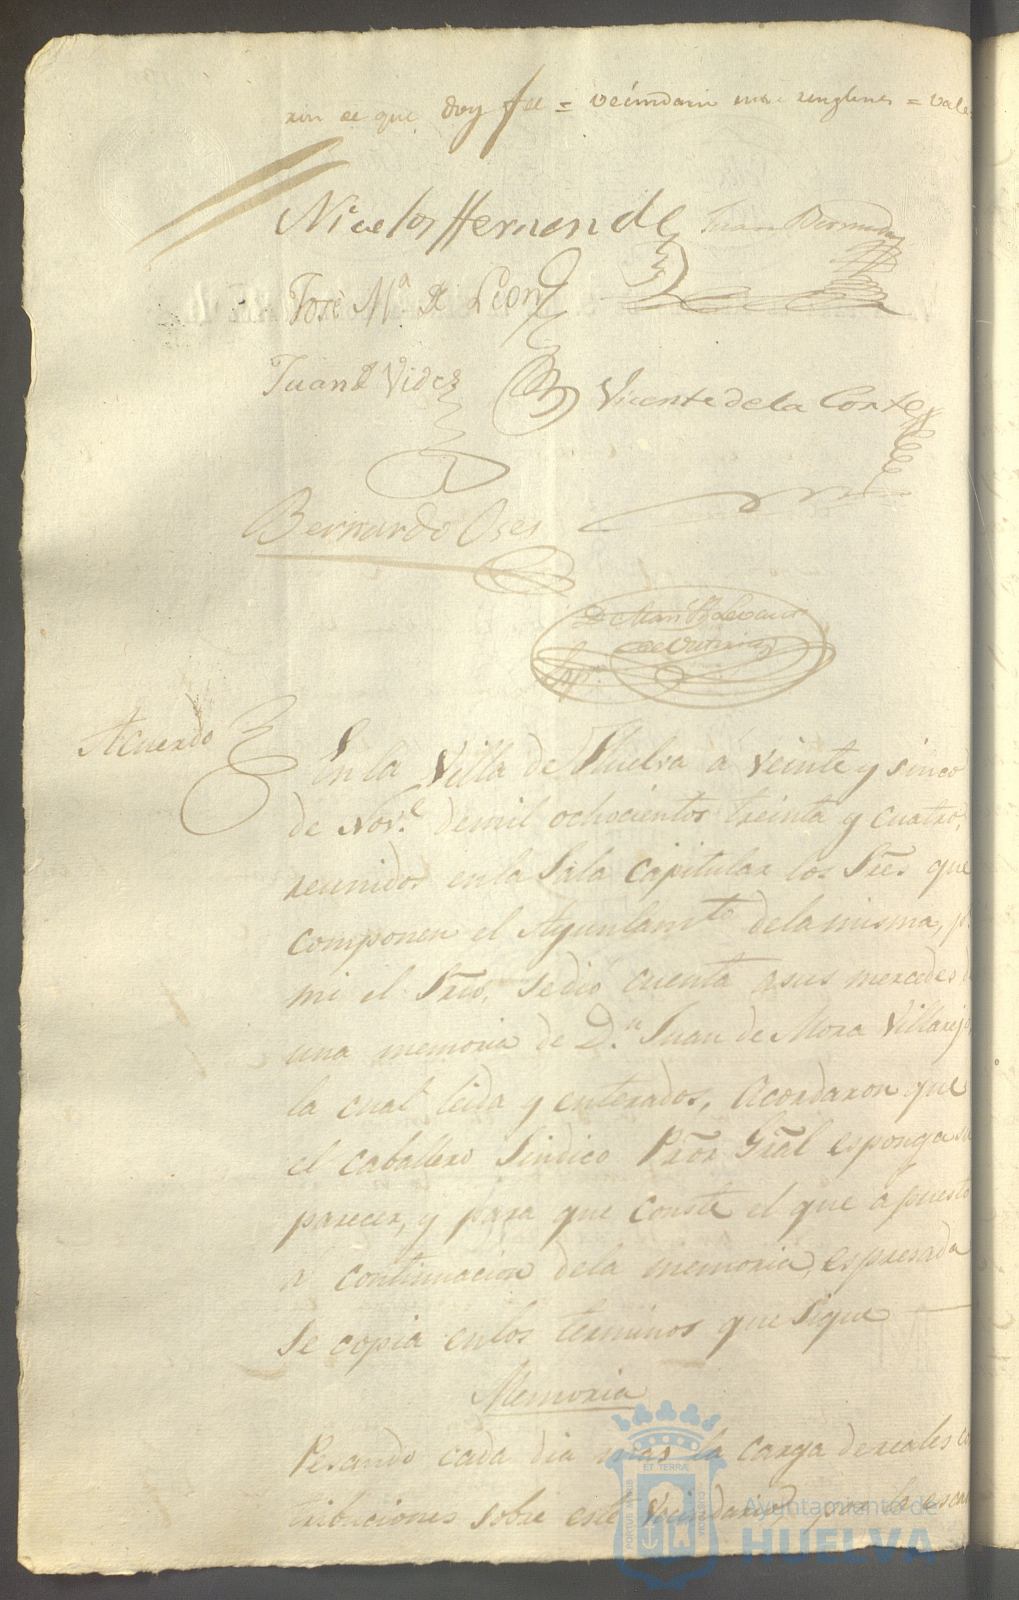 ron de que doy fee = vecindario entre renglones = vale
Nicolas Hernandez Juan Bermudez
José Mª de Leon
Juan Videz
Vicente de la Corte
Bernardo Oses
Acuerdo
En la Villa de Huelva á veinte y sinco
de Nov.e de mil ochocientos treinta y cuatro,
reunidos en la Sala Capitular los Sres que
componen el Ayuntamto de la misma, pr.
mi el Srio, se dió cuenta a sus mercedes de
una memoria de D.n Juan de Mora Villarejo,
la cual leida y enterados, Acordaron que
el caballero Sindico Pror Gral esponga su
parecer, y para que conste el que á puesto
á continuacion de la memoria, espresada
se copia en los terminos que sigue
Memoria
Pesando cada dia mas la carga de reales con
tribuciones sobre este Vecindario, por la
ET TERRAE
PORTUS MARIS
CUSTODIA
Ayuntamiento de
HUELVA